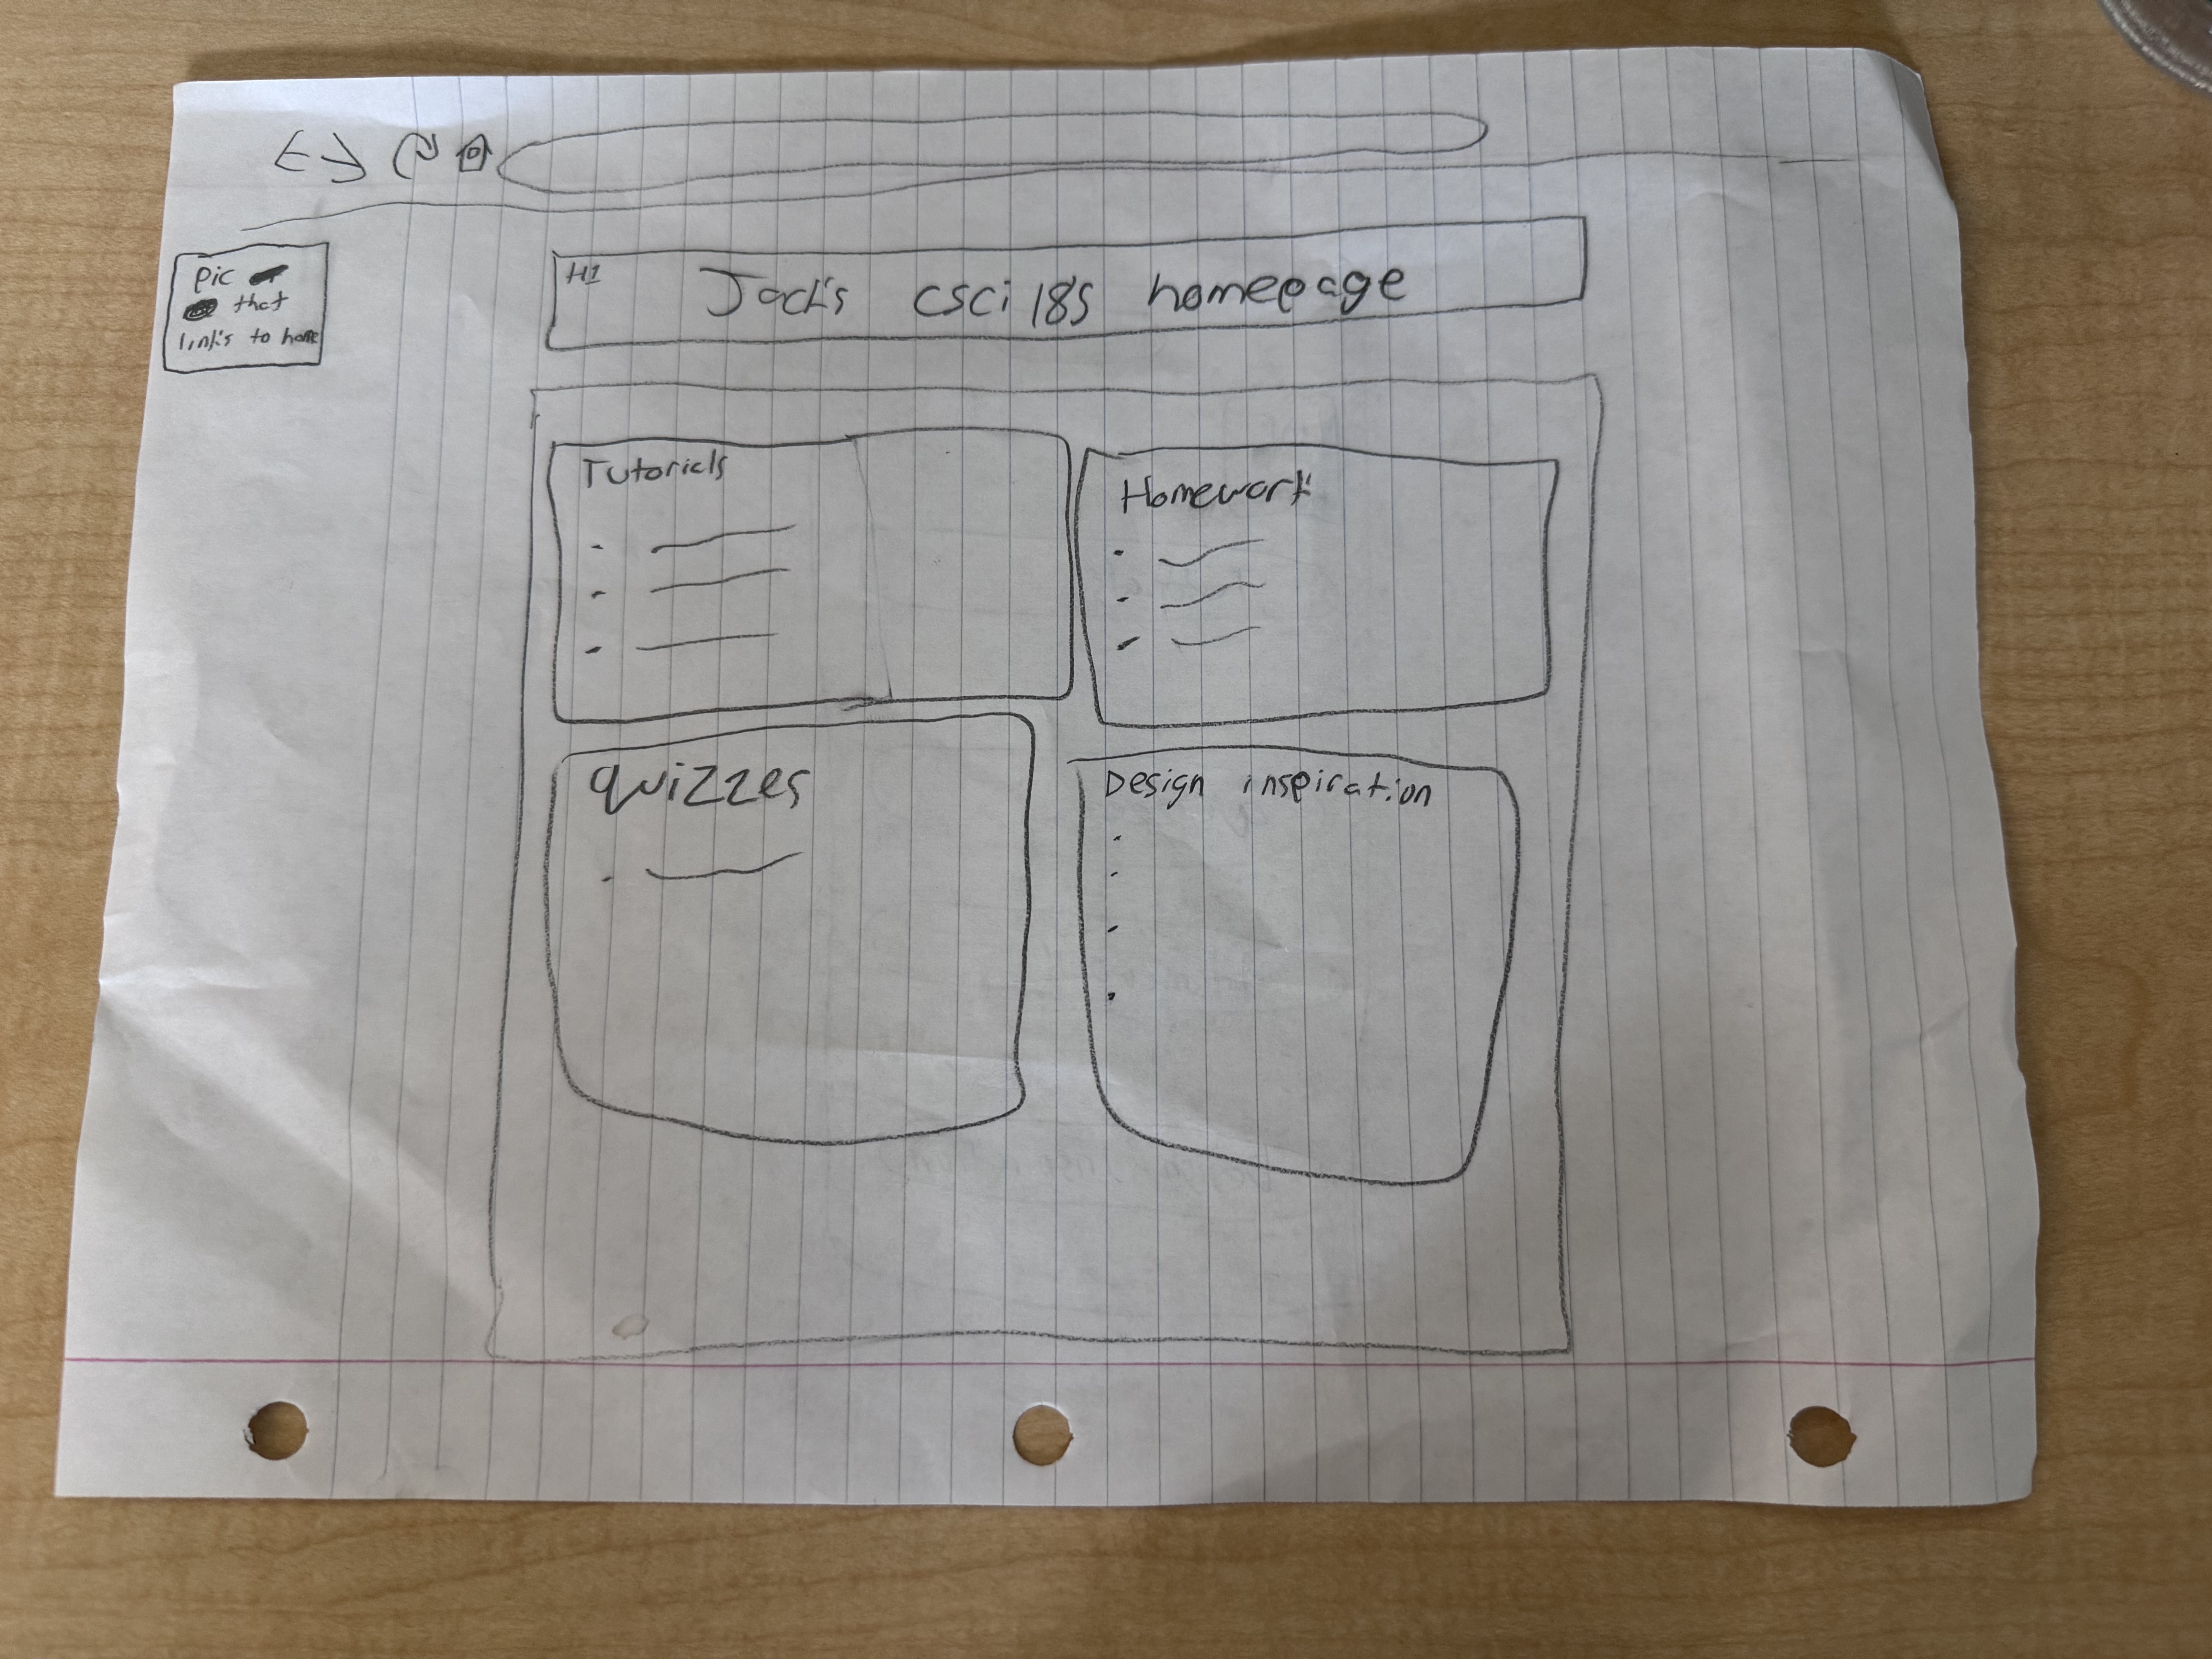 Pic
that
links to home
H1 Jack's csci 185 homepage
Tutorials
Homework
quizzes
Design inspiration